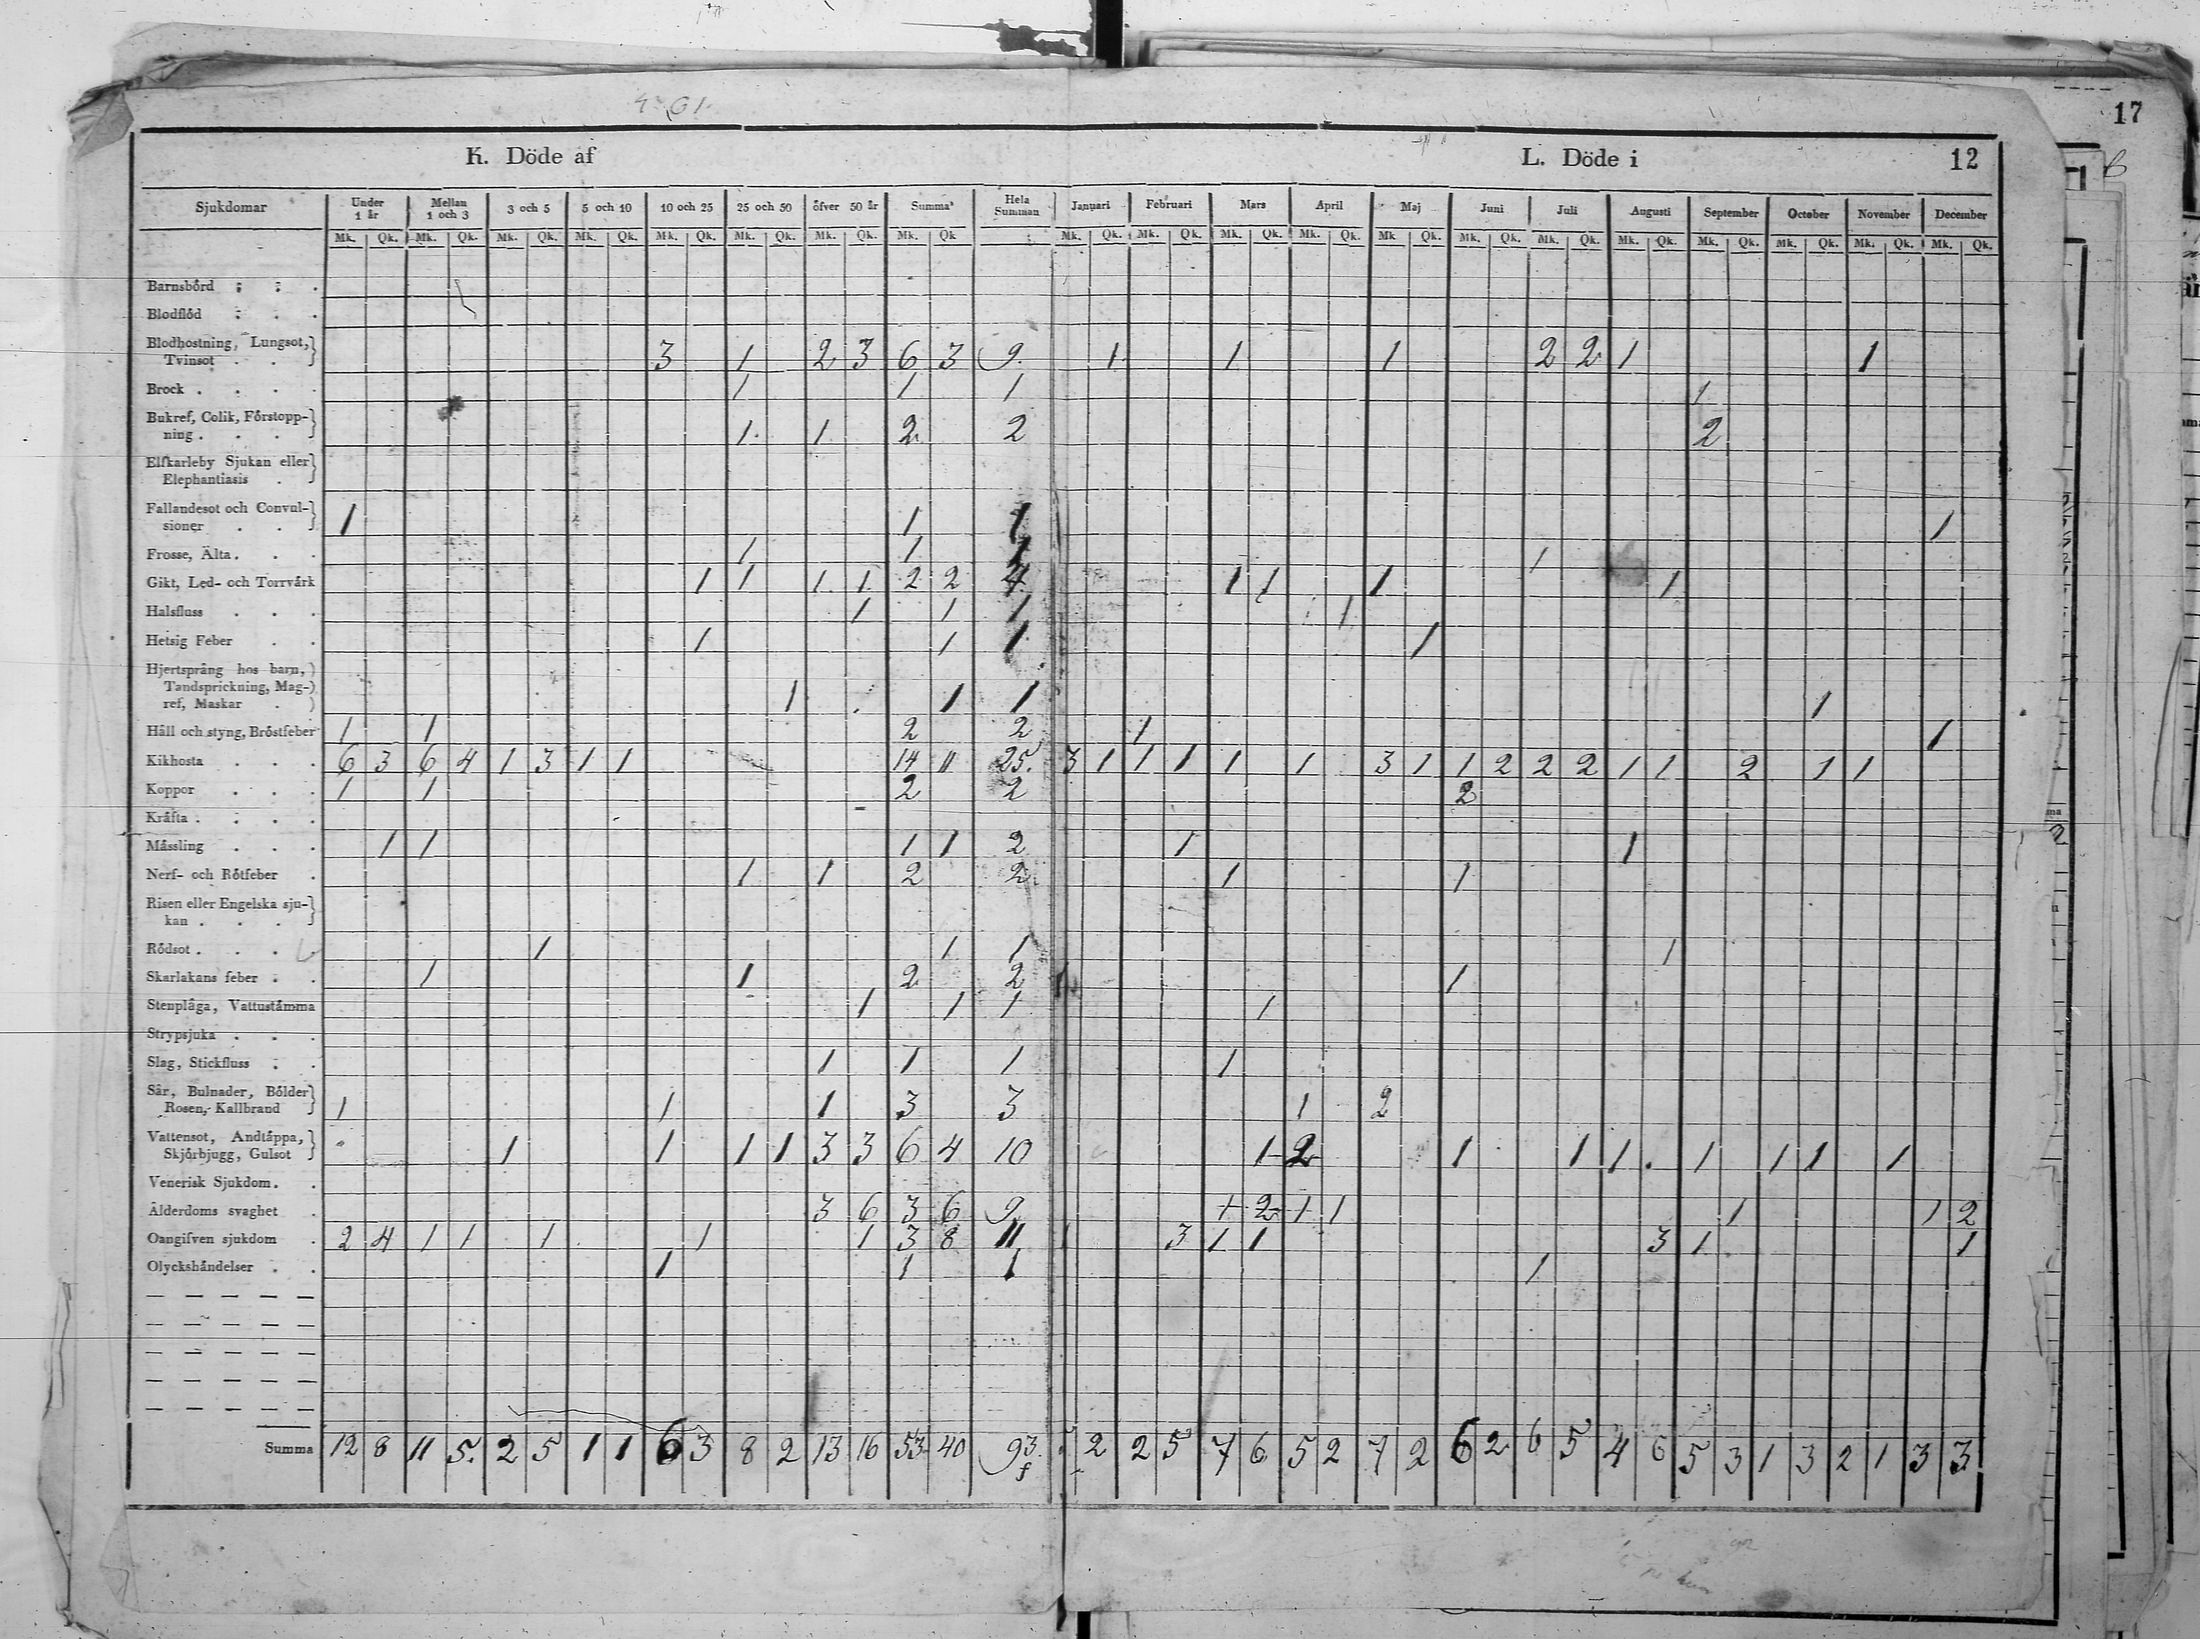 17
K. Döde af
L. Döde i 12
Sjukdomar Under 1 år Mellan 1 och 3 3 och 5 5 och 10 10 och 25 25 och 50 öfver 50 år Summa Hela Summan Januari Februari Mars April Maj Juni Juli Augusti September October November December
Mk. Qk. Mk. Qk. Mk. Qk. Mk. Qk. Mk. Qk. Mk. Qk. Mk. Qk. Mk. Qk Mk. Qk. Mk. Qk. Mk. Qk. Mk. Qk. Mk Qk. Mk. Qk. Mk. Qk. Mk. Qk. Mk. Qk. Mk. Qk. Mk. Qk. Mk. Qk.
Barnsbörd
Blodflöd
Blodhostning, Lungsot,
Tvinsot 3 1 2 3 6 3 9. 1 1 1 2 2 1 1
Brock 1 1 1 1
Bukref, Colik, Förstopp-
ning 1 1 2 2 2
Elfkarleby Sjukan eller
Elephantiasis
Fallandesot och Convul-
sioner 1 1 1 1
Frosse, Älta 1 1 1 1
Gikt, Led- och Torrvärk 1 1 1 1 2 2 4 1 1 1 1
Halsfluss 1 1 1 1
Hetsig Feber 1 1 1 1
Hjertsprång hos barn,
Tandsprickning, Mag-
ref, Maskar 1 1 1 1
Håll och styng, Bröstfeber 1 1 2 2 1 1
Kikhosta 6 3 6 4 1 3 1 1 14 11 25. 3 1 1 1 1 1 3 1 1 2 2 2 1 1 2 1 1
Koppor 1 1 2 2 2
Kräfta
Mässling 1 1 1 1 2 1 1
Nerf- och Rötfeber 1 1 2 2 1 1
Risen eller Engelska sju-
kan
Rödsot 1 1 1 1
Skarlakans feber 1 1 2 2 1 1
Stenplåga, Vattustämma 1 1 1 1
Strypsjuka
Slag, Stickfluss 1 1 1 1
Sår, Bulnader, Bölder
Rosen, Kallbrand 1 1 1 3 3 1 2
Vattensot, Andtäppa,
Skjörbjugg, Gulsot 1 1 1 1 3 3 6 4 10 1 2 1 1 1 1 1 1 1
Venerisk Sjukdom
Ålderdoms svaghet 3 6 3 6 9 1 2 1 1 1 1 2
Oangifven sjukdom 2 4 1 1 1 1 1 3 8 11 1 3 1 1 3 1 1
Olyckshändelser 1 1 1 1
Summa 12 8 11 5. 2 5 1 1 6 3 8 2 13 16 53 40 93. 2 2 5 7 6 5 2 7 2 6 2 6 5 4 6 5 3 1 3 2 1 3 3